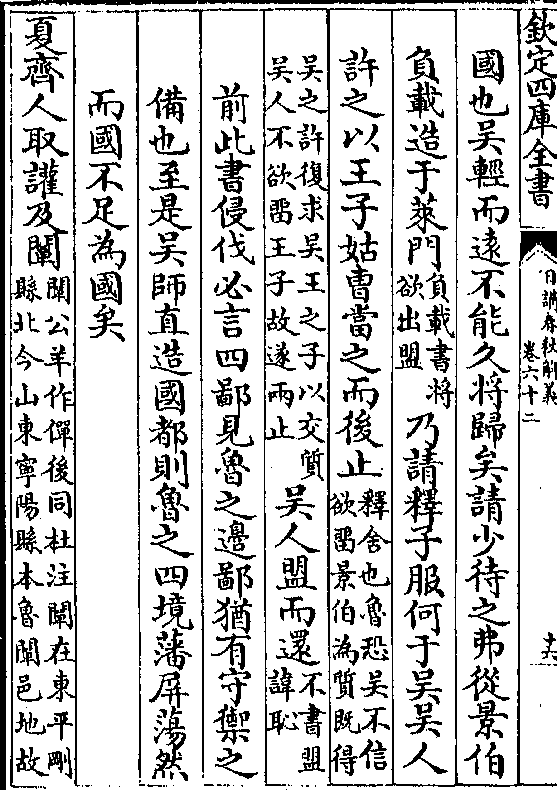 欽定四庫全書
日講春秋解義
卷六十二
十六
國也吳輕而遠不能久將歸矣請少待之弗從景伯
負載造于萊門負載書將欲出盟乃請釋子服何于吳吳人
許之以王子姑曹當之而後止釋舍也魯恐吳不信欲畱景伯為質既得
吳之許復求吳王之子以交質吳人不欲畱王子故遂兩止吳人盟而還不書盟諱恥
前此書侵伐必言四鄙見魯之邊鄙猶有守禦之
備也至是吳師直造國都則魯之四境藩屏蕩然
而國不足為國矣
夏齊人取讙及闡闡公羊作僤後同杜注闡在東平剛縣北今山東寧陽縣本魯闡邑地故